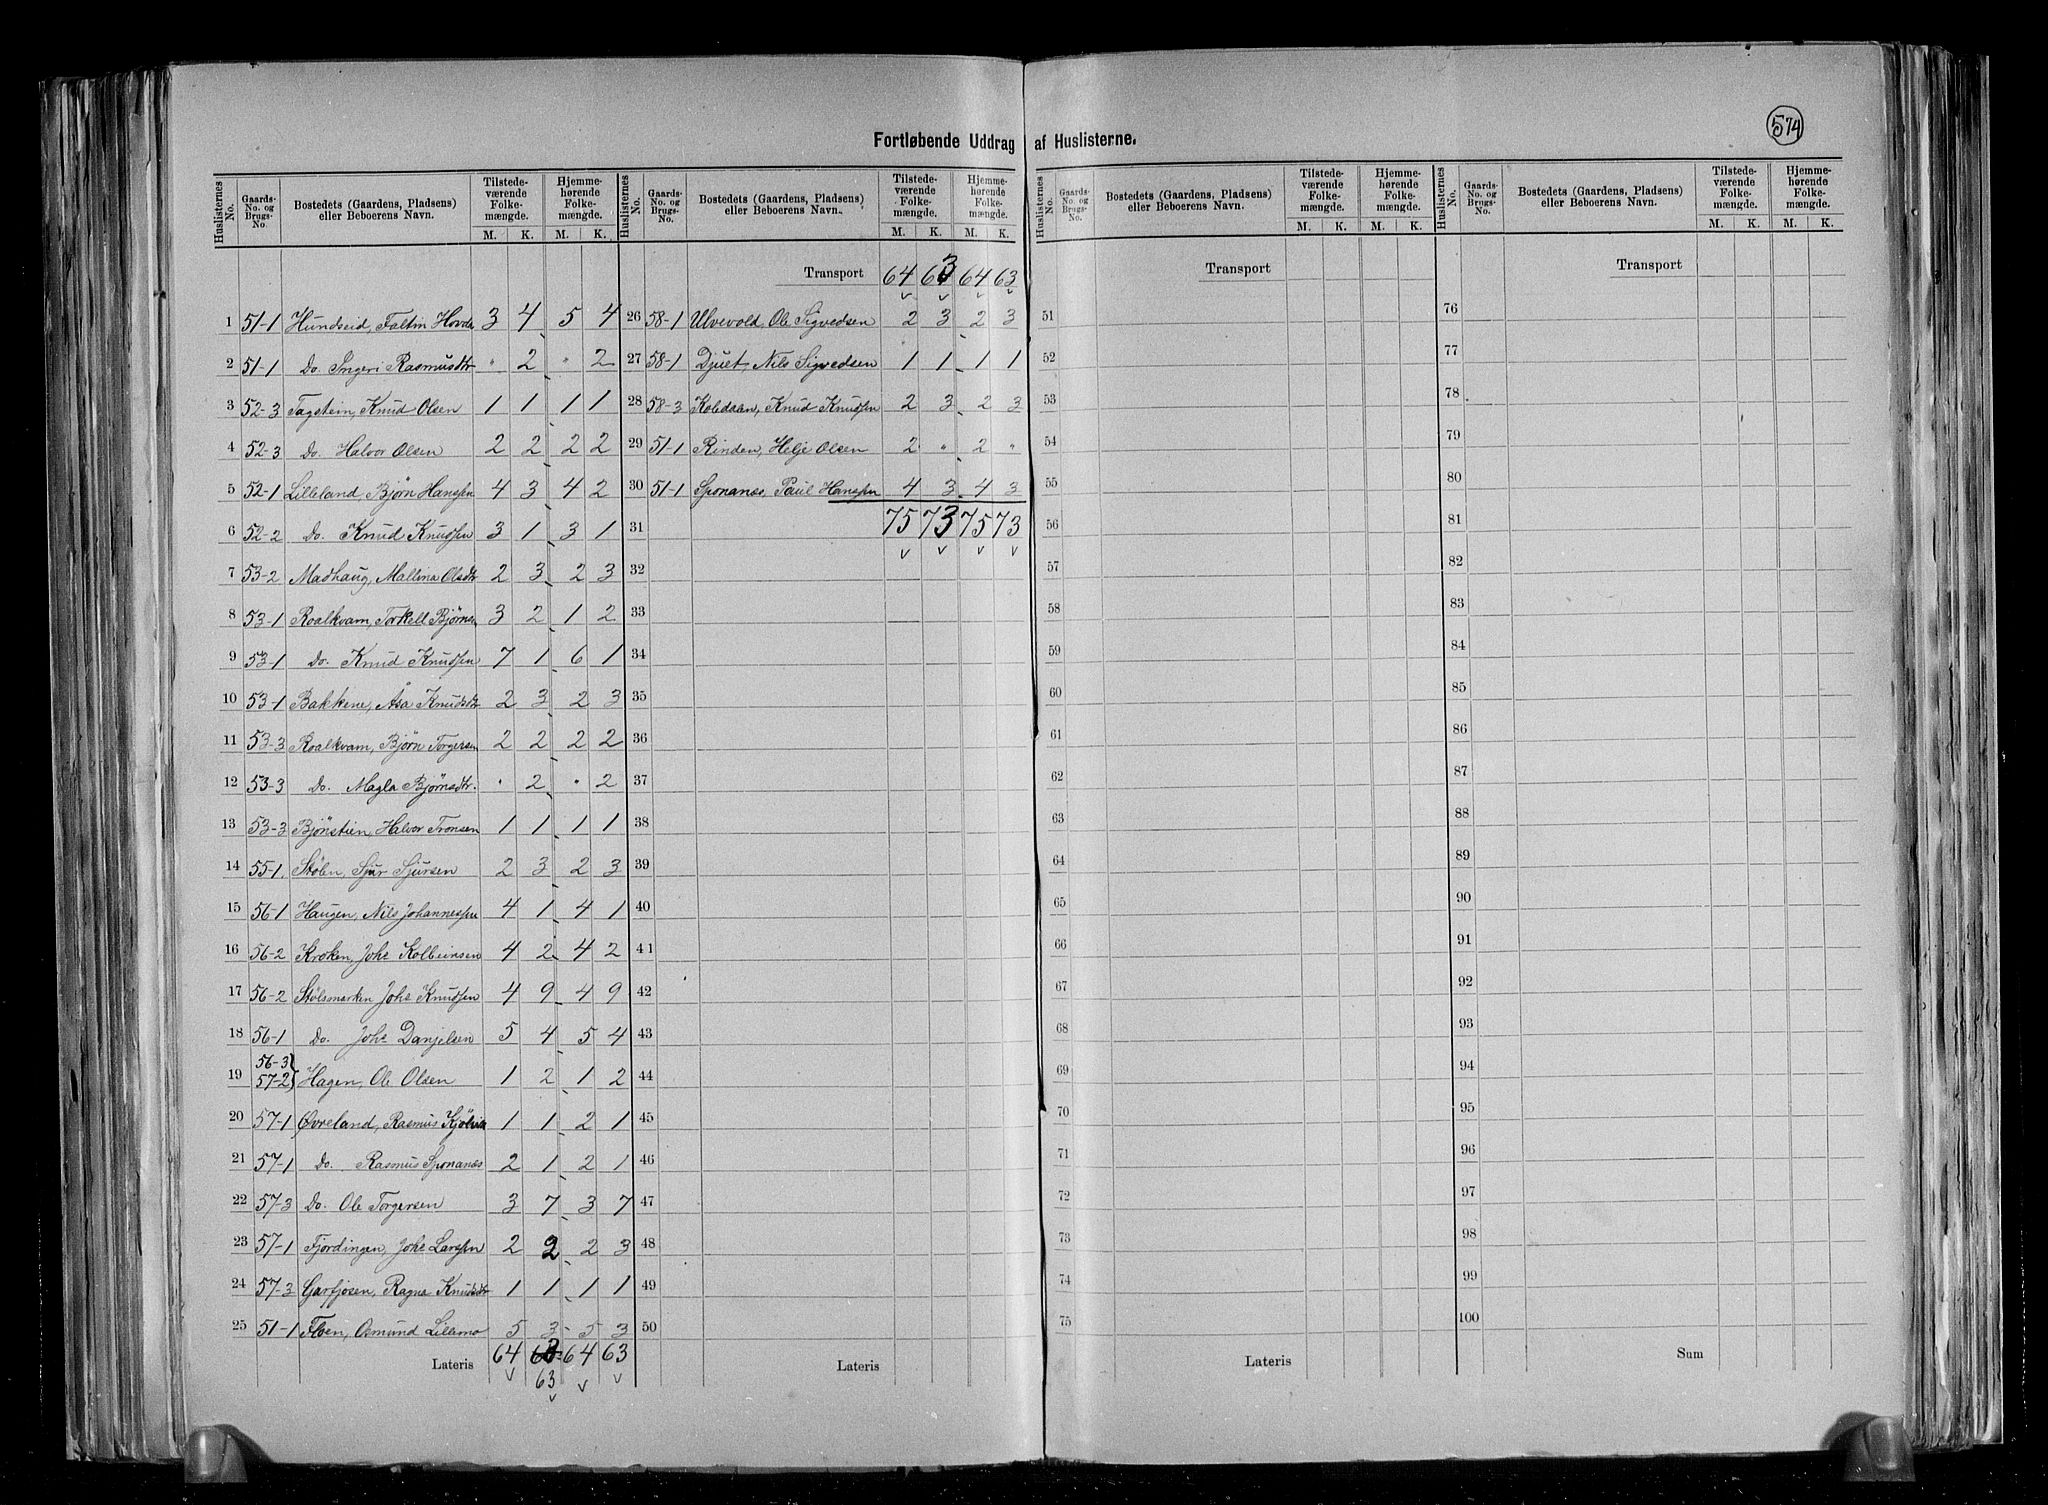 574
Fortløbende Uddrag af Huslisterne.
Huslisternes No. Gaards-No. og Brugs-No. Bostedets (Gaardens, Pladsens) eller Beboerens Navn. Tilstede-værende Folke-mængde. M. K. Hjemme-hørende Folke-mængde. M. K.
1 51-1 Hundseid, Faltin Hovda 3 4 5 4
2 51-1 Do. Ingeri Rasmusdtr " 2 " 2
3 52-3 Tagstein, Knud Olsen 1 1 1 1
4 52-3 Do. Halvor Olsen 2 2 2 2
5 52-1 Lilleland, Bjørn Hanssen 4 3 4 2
6 52-2 Do. Knud Knudsen 3 1 3 1
7 53-2 Madhaug, Mallina Olsdtr 2 3 2 3
8 53-1 Roalkvam, Torkell Bjørnsen 3 2 1 2
9 53-1 Do. Knud Knudsen 7 1 6 1
10 53-1 Bakkene, Åsa Knudsdtr 2 3 2 3
11 53-3 Roalkvam, Bjørn Torgersen 2 2 2 2
12 53-3 Do. Magla Bjørnsdtr. " 2 " 2
13 53-3 Bjönstien, Halvor Tronsen 1 1 1 1
14 55-1. Stølen, Sjur Sjursen 2 3 2 3
15 56-1 Haugen, Nils Johannessen 4 1 4 1
16 56-2 Kroken, Johs Kolbeinsen 4 2 4 2
17 56-2 Stølsmarken Johs Knudsen 4 9 4 9
18 56-1 Do. Johs Danjelsen 5 4 5 4
19 56-3 57-2} Hagen, Ole Olsen 1 2 1 2
20 57-1 Øvreland, Rasmus 1 1 2 1
21 57-1 Do. Rasmus Sponanæs 2 1 2 1
22 57-3 Do. Ole Torgersen 3 7 3 7
23 57-1 Fjordingen, Johs Larssen 2 2 2 3
24 57-3 Garfjosen, Ragna Knudsdtr 1 1 1 1
25 51-1 Floen, Osmund Lillemo 5 3 5 3
Lateris 64 63 64 63
63
Huslisternes No. Gaards-No. og Brugs-No. Bostedets (Gaardens, Pladsens) eller Beboerens Navn. Tilstede-værende Folke-mængde. M. K. Hjemme-hørende Folke-mængde. M. K.
Transport 64 63 64 63
26 58-1 Ulvevold, Ole Sigvedsen 2 3 2 3
27 58-1 Djuet, Nils Sigvedsen 1 1 1 1
28 58-3 Koledaen, Knud Knudsen 2 3 2 3
29 51-1 Rinden, Helje Olsen 2 " 2 "
30 51-1 Sponanæs, Paul Hanssen 4 3 4 3
31 75 73 75 73
32
33
34
35
36
37
38
39
40
41
42
43
44
45
46
47
48
49
50
Lateris
Huslisternes No. Gaards-No. og Brugs-No. Bostedets (Gaardens, Pladsens) eller Beboerens Navn. Tilstede-værende Folke-mængde. M. K. Hjemme-hørende Folke-mængde. M. K.
Transport
51
52
53
54
55
56
57
58
59
60
61
62
63
64
65
66
67
68
69
70
71
72
73
74
75
Lateris
Huslisternes No. Gaards-No. og Brugs-No. Bostedets (Gaardens, Pladsens) eller Beboerens Navn. Tilstede-værende Folke-mængde. M. K. Hjemme-hørende Folke-mængde. M. K.
Transport
76
77
78
79
80
81
82
83
84
85
86
87
88
89
90
91
92
93
94
95
96
97
98
99
100
Sum